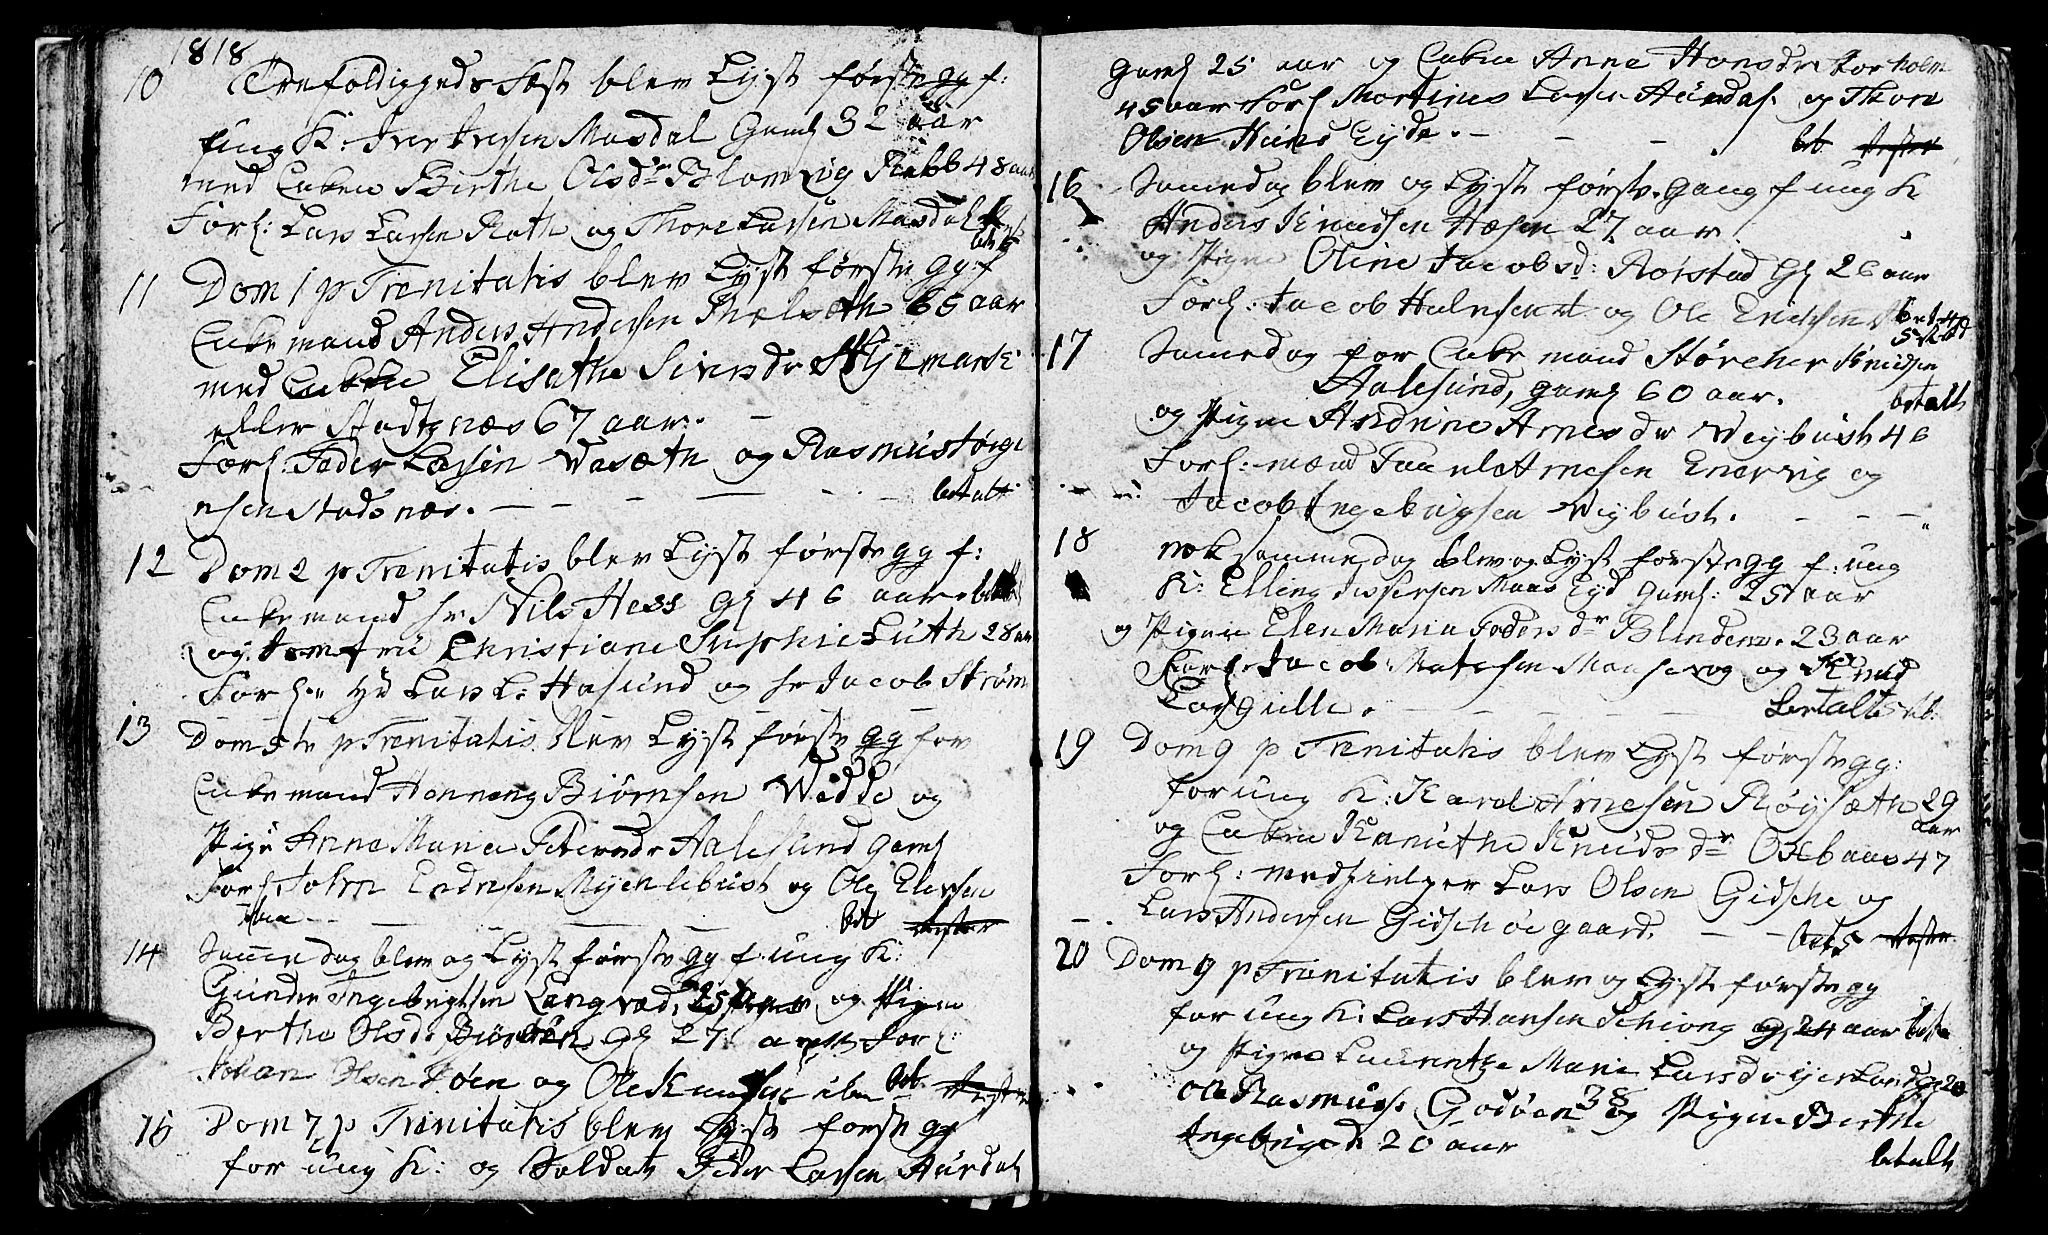 1818
10 Trefoldigheds Fest blev Lyst første gg f:
ung K: Iver Iversen Masdal Gaml 32 aar
med Enken Birthe Olsdr Blomvig Rabb 48 aar
Forl: Lars Larsen Roth og Thore Larsen Masdal
bet
11 Dom 1 p Trenitatis blev Lyst første gg f
Enkemand Anders Andersen Thelseth 65 aar
med Enken Elisathe Sivers dr
eller Stadsnæs 67 aar. -
Forl: Peder Larsen Wasæth og Rasmus Jørge
nsen Stadsnæs. - - - - - betalt
12 Dom 2 p Trenitatis blev Lyst første gg f:
Enkemand hr Nils Hess Gl 46 aar
og Jomfru Christiane Sophie Luth 28 aar
Forl: Lars L: Hasund og hr Jacob Strøm
13 Dom 5te p Trenitatis blev Lyst første gg for
Enkemand Henneng Biørnsen Wedde og
Pige Anne Maria Petersdr Aalesund gaml
Forl John Endresen Myenlebust og Ole Elevsen
ibm - - - - bet
14 Samme Dag blev og Lyst første gg f: ung K:
Gunder Ingebrigtsen Langvad, 25 aar og Pigen
Berthe Olsd. gl 27 aar Forl:
Johan Olsen og Ole Knudsen ibm bet.
15 Dom 7 p Trenitatis blev Lyst første gg
for ung K: og Soldat Peder Larsen Aurdal
Gaml 25 aar og Enken Anne Hansdr Storholm
45 aar Forl Mortines Larsen Aurdal og Thore
Olsen Hund Eyde. - - - bet
16 Samedag blev og Lyst første gang f ung K
Anders Knudsen Hæsen 27 aar
og Pigen Oline Jacobsd: Rørstad Gl 26 aar
Forl: Jacob og Ole Erichsen
17 Samedag for Enkemand Størcher Knudsen
Aalesund, gaml 60 aar. betalt
og Pigen Andrine Arnesdr Weybust 46
Forl: mænd Arnesen Enervig og
Jacob Ingebrigsen Weybust. - - -
18 nok samme dag blev og Lyst første gg f: ung
K: Elling Maas Eyd Gaml: 25 aar
og Pigen Elen Maria Peders dr Blindem. 23 aar
Forl: Jacob Matesen og Knud
- - - - - betalt
19 Dom 9 p Trenitatis blev Lyst første gg:
for ung K: Karl Arnesen Røysæth 29
aar
og Enken Knuthe Knudsdr Oxebaas 47
Forl: medhielper Lars Olsen Gidsche og
Lars Andersen Gidschøegaard. - - bet 5
20 Dom 9 p Trenitatis blev og Lyst første gg
for ung K: Lars Hansen Schiong gl 24 aar
og Pigen Laurentze Marie Larsdr
Ole Rasmus: Godøen 38 og Pigen Berthe
Ingebrigsd 20 aar
betalt